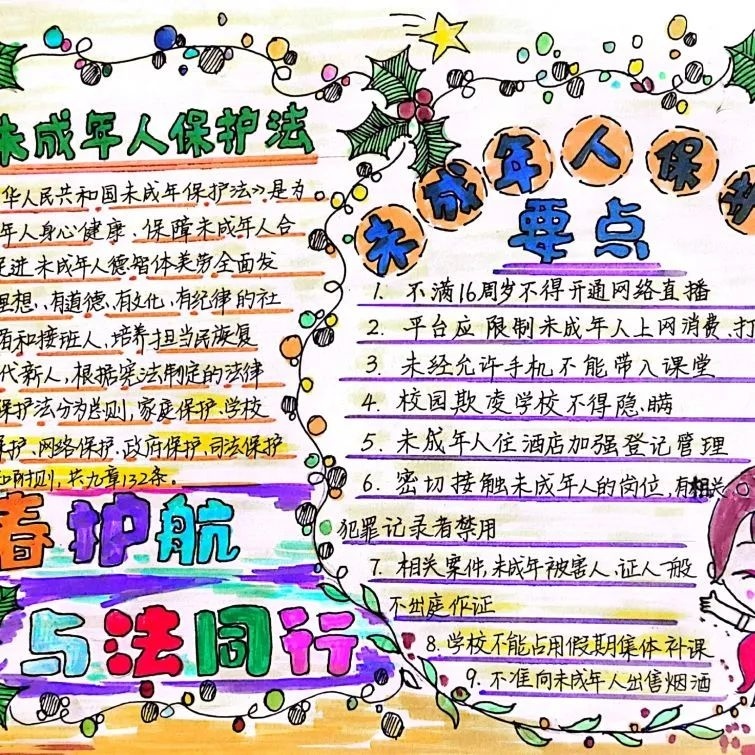 未成年人保护法
华人民共和国未成年保护法》是为
年人身心健康、保障未成年人合
促进未成年人德智体美劳全面发
理想、有道德、有文化、有纪律的社
者和接班人，培养担当民族复
代新人，根据宪法制定的法律
保护法分为总则，家庭保护、学校
保护、网络保护、政府保护、司法保护
和附则，共九章132条。
春护航
与法同行
未成年人保护
要点
1. 不满16周岁不得开通网络直播
2. 平台应限制未成年人上网消费、打
3. 未经允许手机不能带入课堂
4. 校园欺凌学校不得隐瞒
5. 未成年人住酒店加强登记管理
6. 密切接触未成年人的岗位，有相关
犯罪记录者禁用
7. 相关案件，未成年被害人、证人一般
不出庭作证
8. 学校不能占用假期集体补课
9. 不准向未成年人出售烟酒